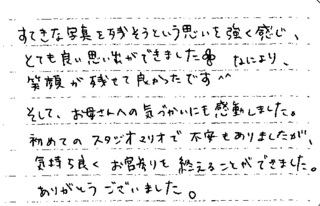 すてきな写真を残そうという思いを強く感じ、
とても良い思い出ができました なにより、
笑顔が残せて良かったです^^
そして、お母さんへの気づかいにも感動しました。
初めてのスタジオマリオで不安もありましたが、
気持ち良くお宮参りを終えることができました。
ありがとうございました。